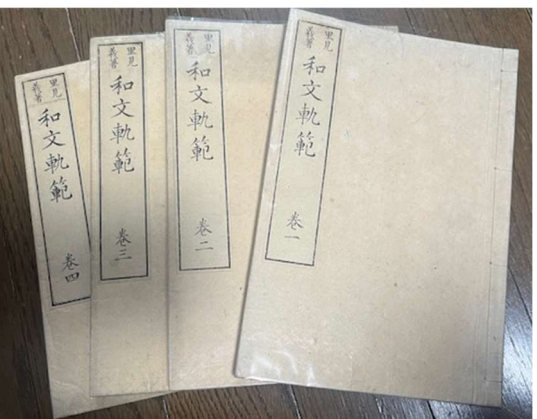 里見
義著
和文軌範
巻一
里見
義著
和文軌範
巻二
里見
義著
和文軌範
巻三
里見
義著
和文軌範
巻四